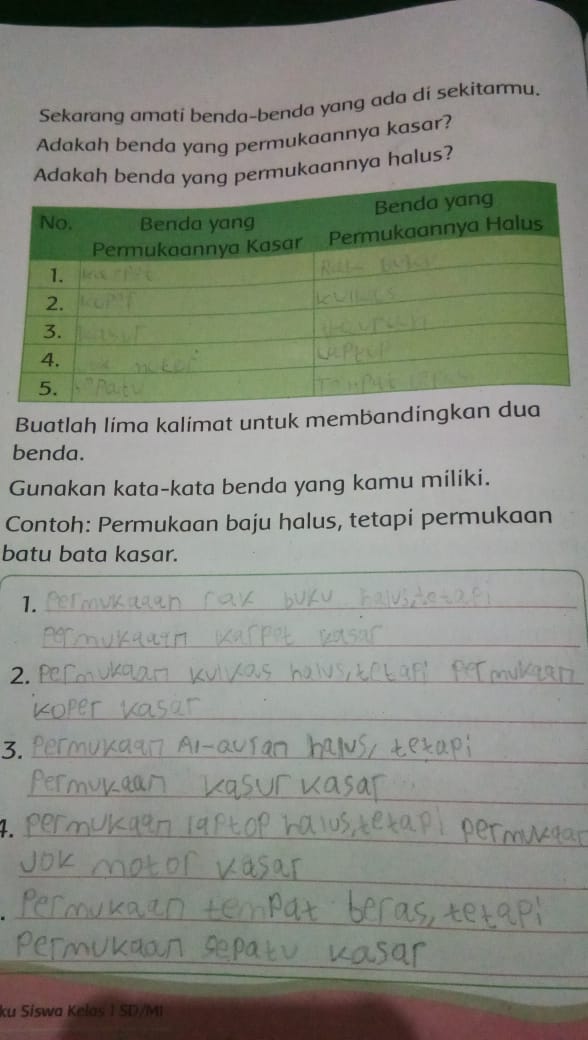 Sekarang amati benda-benda yang ada di sekitarmu.
Adakah benda yang permukaannya kasar?
Adakah benda yang permukaannya halus?
No. Benda yang Permukaannya Kasar Benda yang Permukaannya Halus
1. karpet Rak buku
2. koper kulkas
3. kasur
4. Jok motor Laptop
5. sepatu Tempat beras
Buatlah lima kalimat untuk membandingkan dua
benda.
Gunakan kata-kata benda yang kamu miliki.
Contoh: Permukaan baju halus, tetapi permukaan
batu bata kasar.
1. Permukaaan rak buku halus, tetapi
permukaan karpet kasar
2. Permukaan kulkas halus, tetapi permukaan
koper kasar
3. Permukaan Al-auran halus, tetapi
Permukaan kasur kasar
4. permukaan laptop halus, tetapi permukaan
Jok motor kasar
. Permukaan tempat beras, tetapi
Permukaan sepatu kasar
ku Siswa Kelas 1 SD/MI